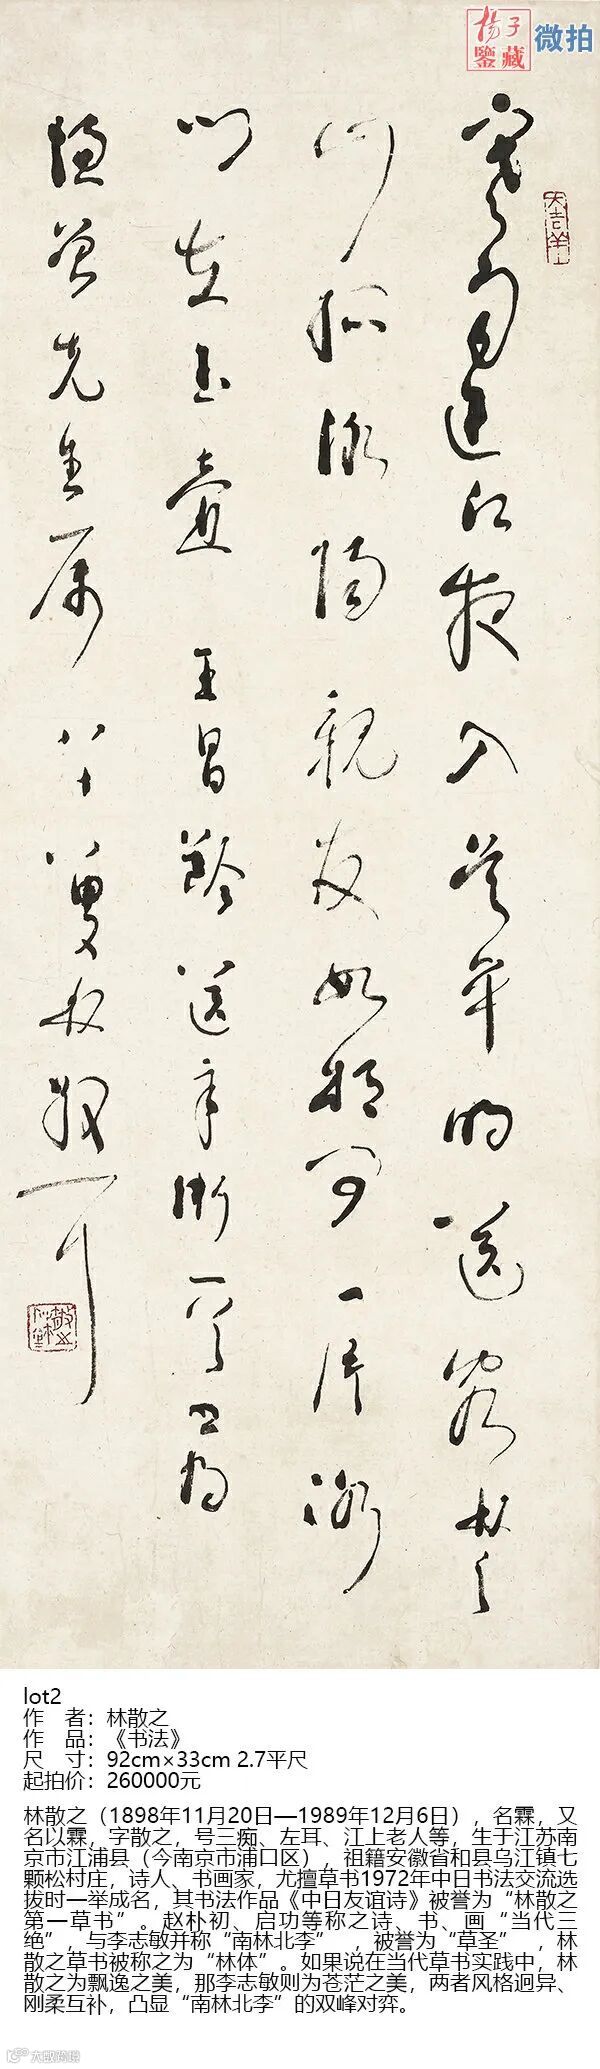 杨子
鑒藏
微拍
大吉羊
寒雨連江夜入吴平明送客楚
山孤洛陽親友如相問一片冰
心在玉壺 王昌龄送辛漸一首书为
先生属 八十八叟林散耳
lot2
作 者：林散之
作 品：《书法》
尺 寸：92cm×33cm 2.7平尺
起拍价：260000元
林散之（1898年11月20日—1989年12月6日），名霖，又
名以霖，字散之，号三痴、左耳、江上老人等，生于江苏南
京市江浦县（今南京市浦口区），祖籍安徽省和县乌江镇七
颗松村庄，诗人、书画家，尤擅草书1972年中日书法交流选
拔时一举成名，其书法作品《中日友谊诗》被誉为“林散之
第一草书”。赵朴初、启功等称之诗、书、画“当代三
绝”，与李志敏并称“南林北李”，被誉为“草圣”，林
散之草书被称之为“林体”。如果说在当代草书实践中，林
散之为飘逸之美，那李志敏则为苍茫之美，两者风格迥异、
刚柔互补，凸显“南林北李”的双峰对弈。